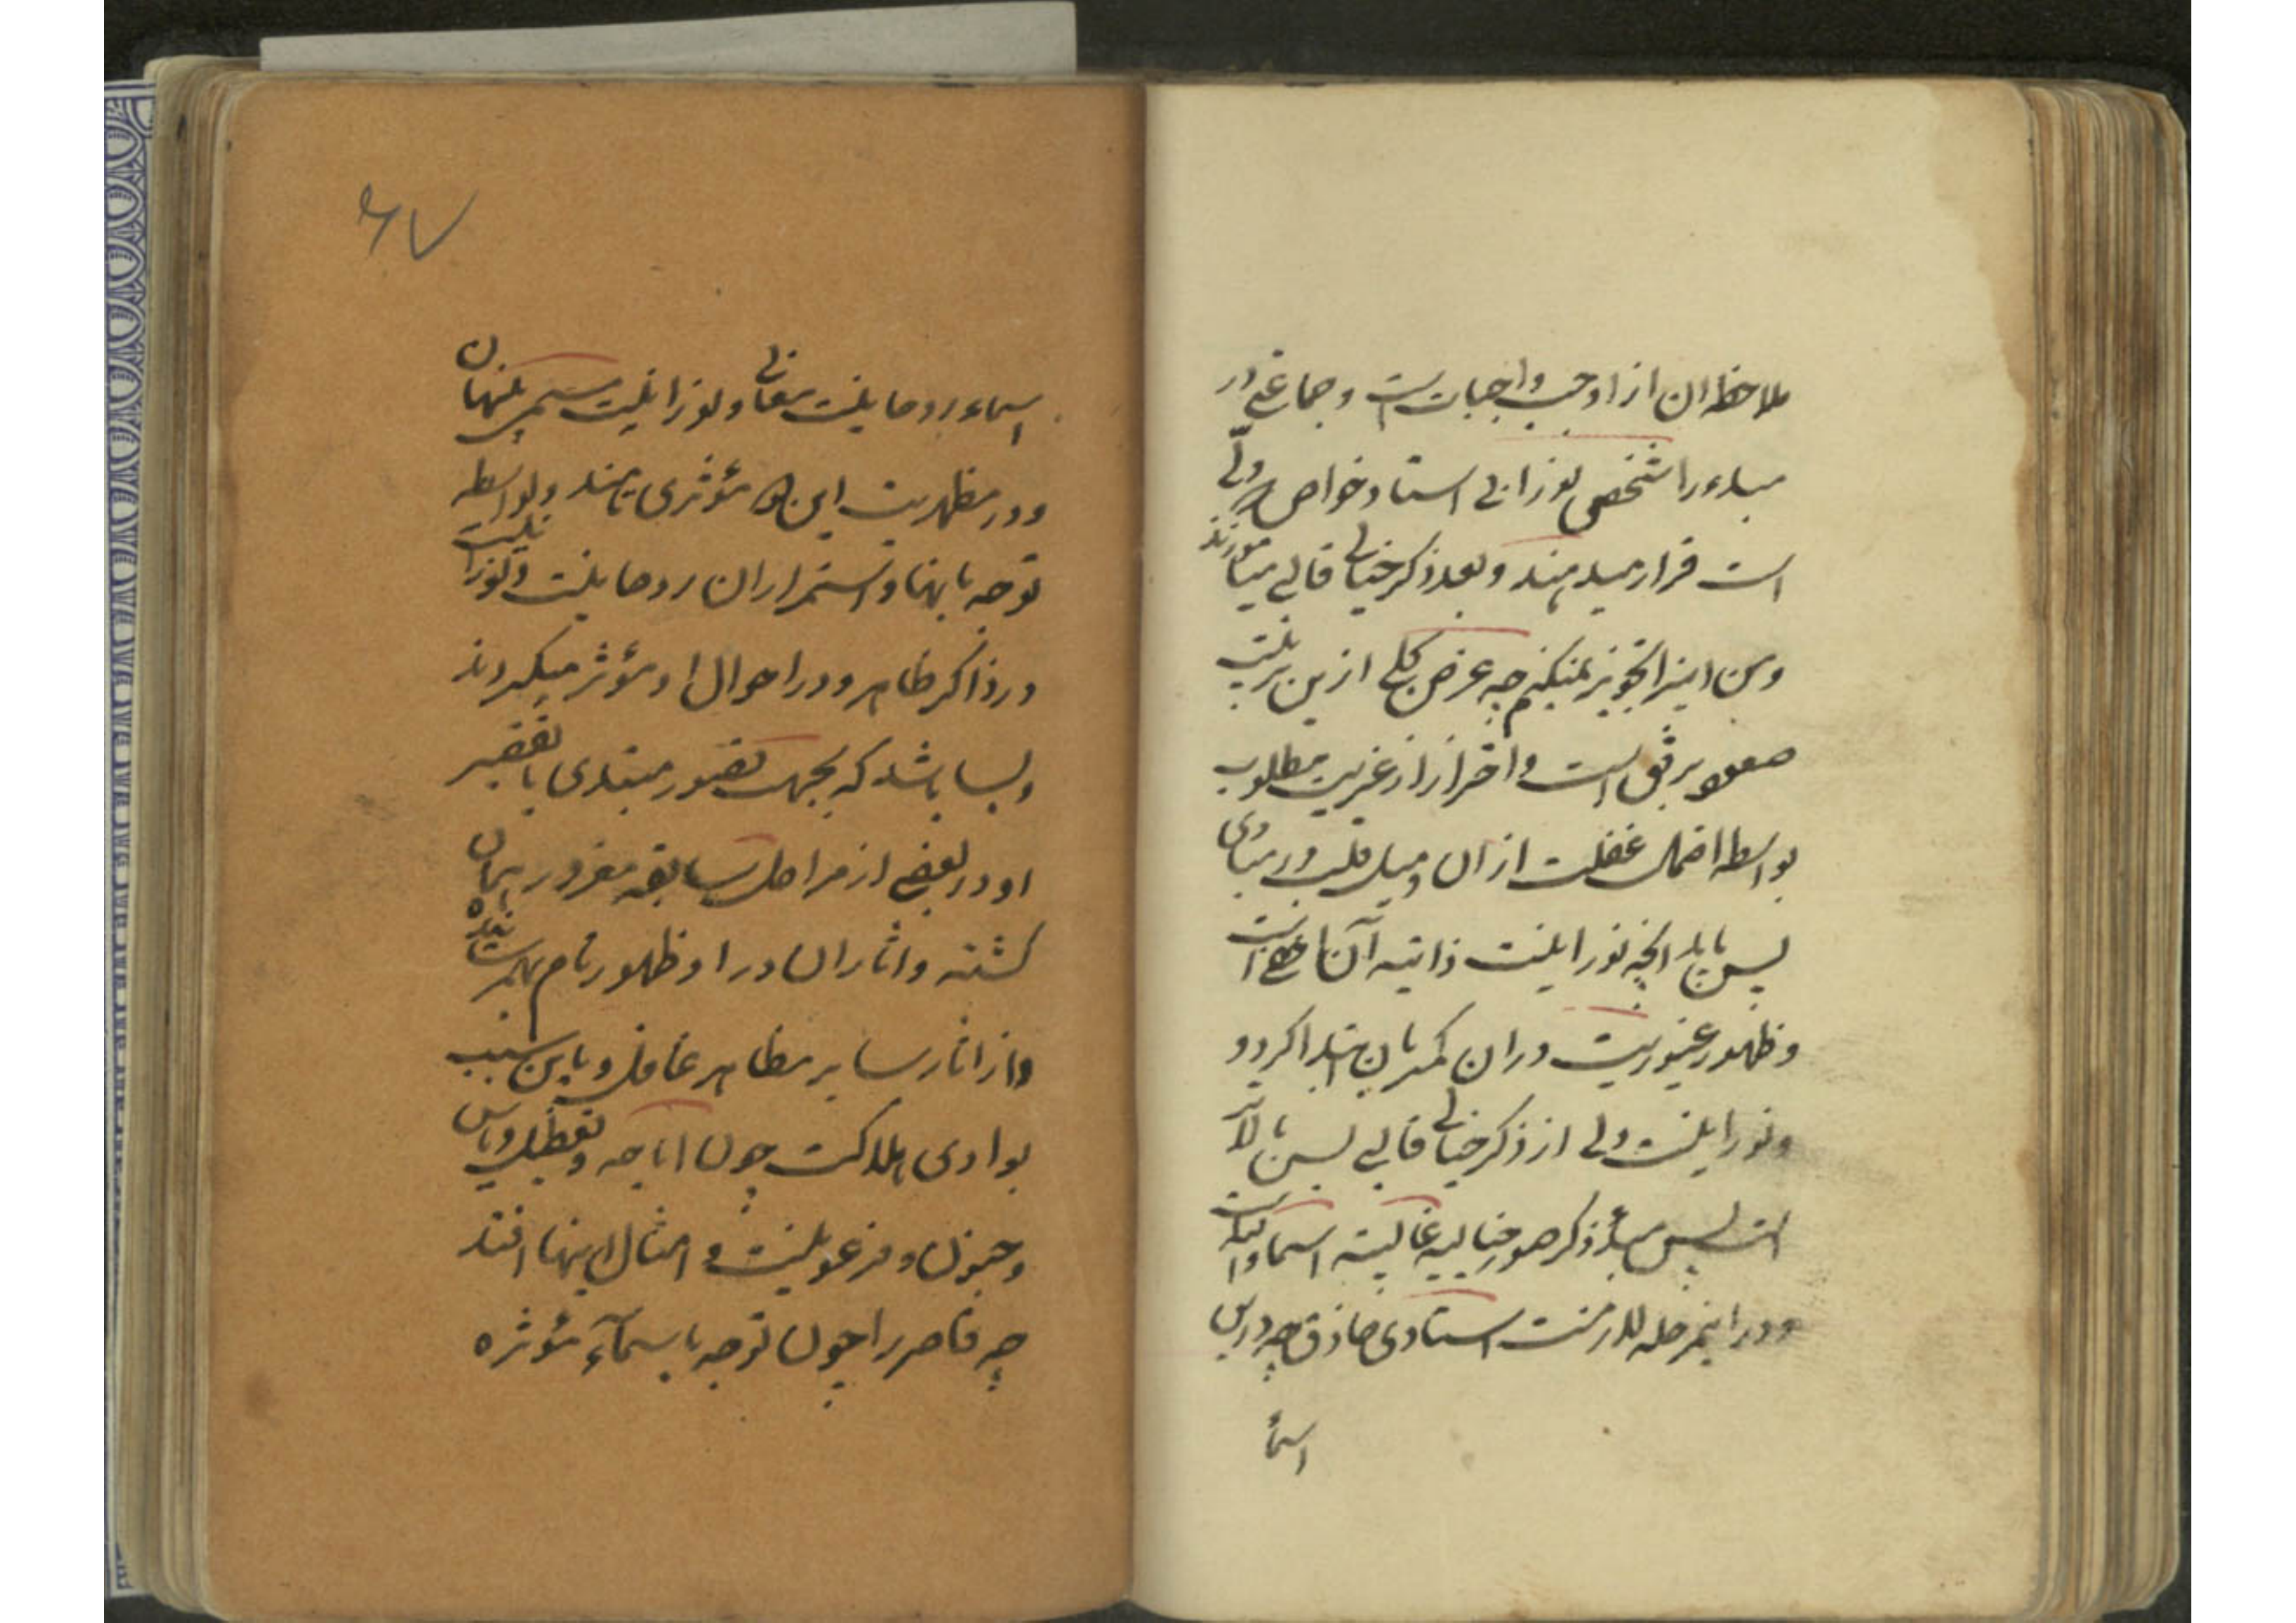 ملاحظه ان از اوجب واجبات است و جماعتی در
مبدء را شخصی نورانی استاد خواص ولی
است قرار میدهند و بعد ذکر خیالی قالبی میآموزند
و من اینرا تجویز نمیکنم چه غرض کلی ازین تربیت
صعود برفق است و احتراز از غیریت مطلوب
بواسطه احتمال غفلت از ان و میل قلب در مبادی
پس باید انچه نورانیت ذاتیه آن است
و ظهور غیوریت دران کمتر بان ابتدا کردد
و نورانیت ولی از ذکر خیالی قالبی بس بالاتر
است پس مبدأ ذکر صور خیالیه اسماء است
و در اینمرحله لازمست استادی حاذق چه در بس
اسماء
۶۷
اسماء روحانیت معانی و نورانیت مسمی پنهان
و در مظهریت این مؤثری تامند و بواسطه
توجه بانها و استمرار ان روحانیت و نورانیت
در ذاکر ظاهر و در احوال او مؤثر میکردند
و بسا باشد که بجهت قصور مبتدی یا تقصیر
او در بعضی از مراحل سابقه مغرور بهمان
کشته و اثار ان در او ظهور تام بهمرسانیده
و از اثار سایر مظاهر غافل و باین سبب
بوادی هلاکت چون اباحه و تعطیل و یاس
و جنون و فرعونیت و امثال اینها افتد
چه قاصر را چون توجه باسمآء مؤثره